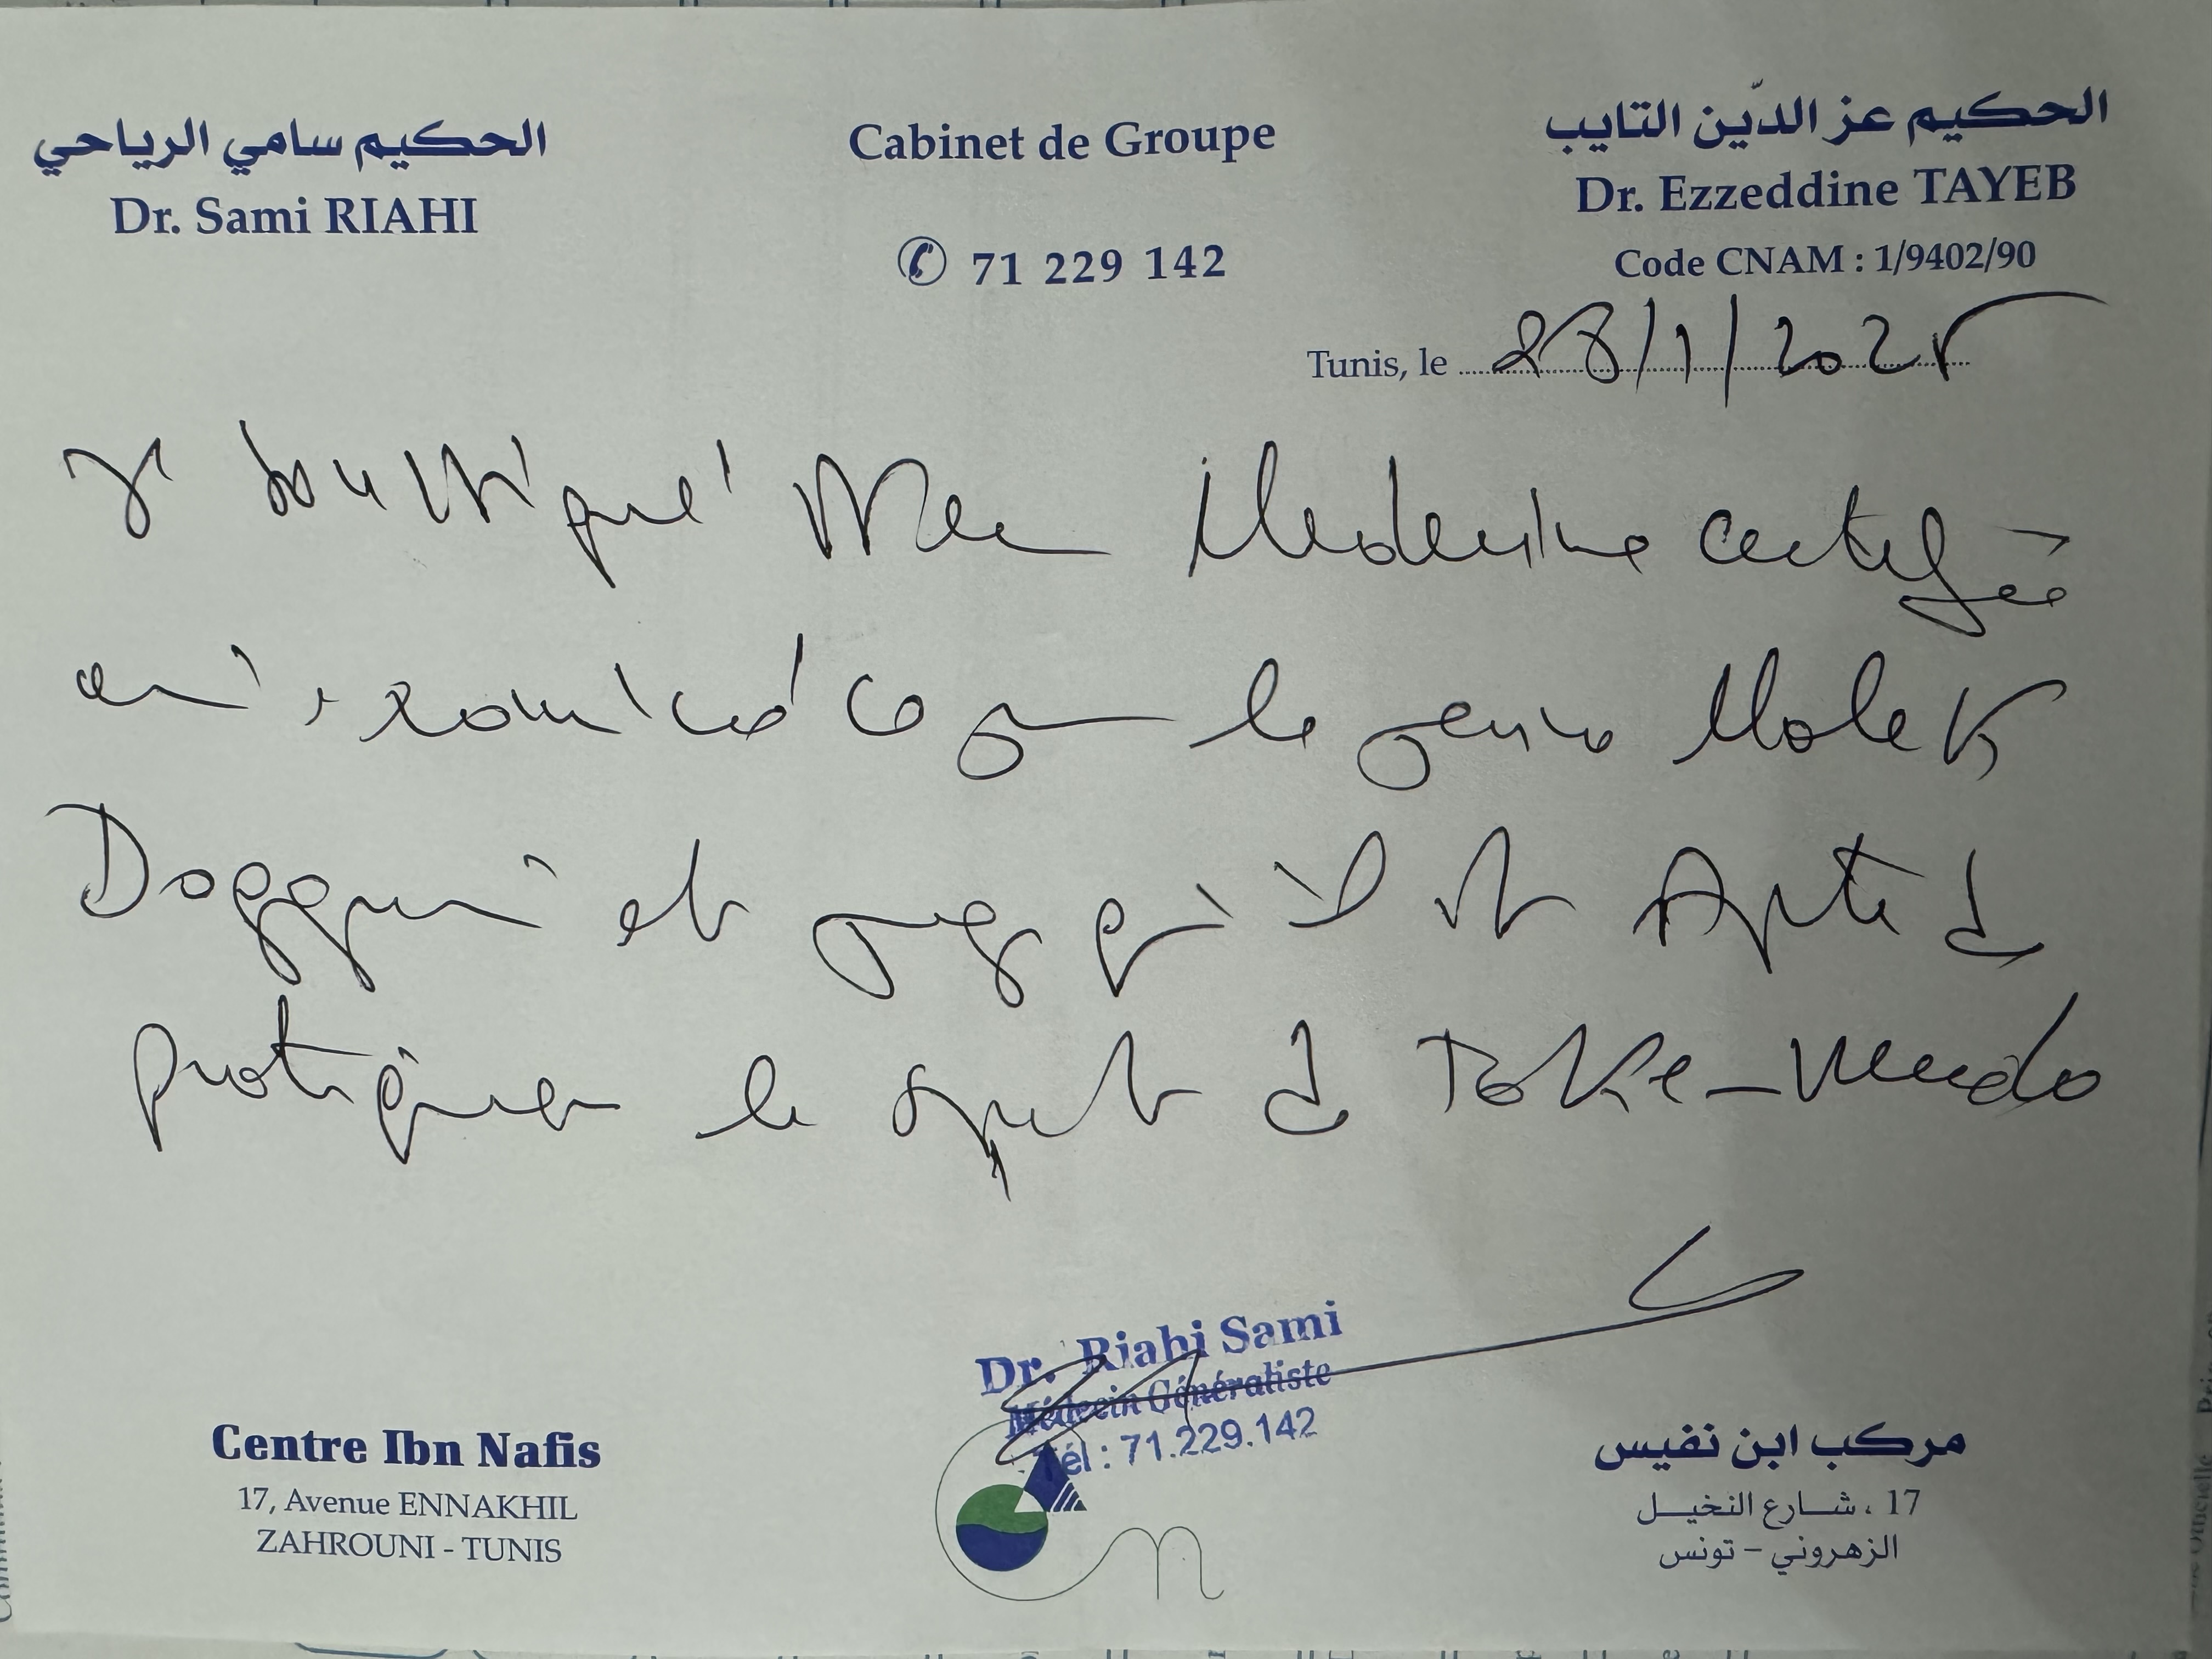 الحكيم سامي الرياحي
Dr. Sami RIAHI
Cabinet de Groupe
71 229 142
الحكيم عز الدّين التايب
Dr. Ezzeddine TAYEB
Code CNAM : 1/9402/90
Tunis, le 28/1/2025
Je soussigné Mer Medecine certifie
avoir examiné ce jour le jeune Malek
Doggui et juge qu'il est Apte à
pratiquer le sport de Take-wendo
Dr. Riahi Sami
Médecin Généraliste
Tél : 71.229.142
Centre Ibn Nafis
17, Avenue ENNAKHIL
ZAHROUNI - TUNIS
مركب ابن نفيس
17 ، شارع النخيل
الزهروني - تونس